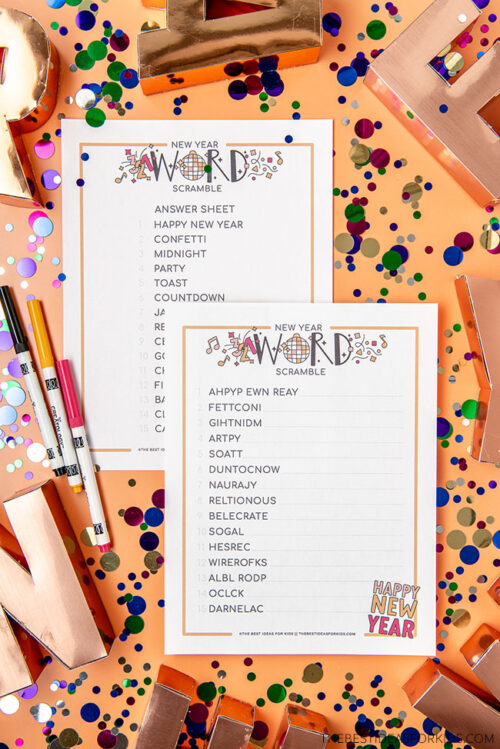 NEW YEAR
WORD
SCRAMBLE
ANSWER SHEET
1 HAPPY NEW YEAR
2 CONFETTI
3 MIDNIGHT
4 PARTY
5 TOAST
6 COUNTDOWN
7 JA
8 RE
9 CE
10 GO
11 CH
12 FI
13 BA
14 CL
15 CA
NEW YEAR
WORD
SCRAMBLE
1 AHPYP EWN REAY
2 FETTCONI
3 GIHTNIDM
4 ARTPY
5 SOATT
6 DUNTOCNOW
7 NAURAJY
8 RELTIONOUS
9 BELECRATE
10 SOGAL
11 HESREC
12 WIREROFKS
13 ALBL RODP
14 OCLCK
15 DARNELAC
HAPPY
NEW
YEAR
©THE BEST IDEAS FOR KIDS || THEBESTIDEASFORKIDS.COM
THEBESTIDEASFORKIDS.COM